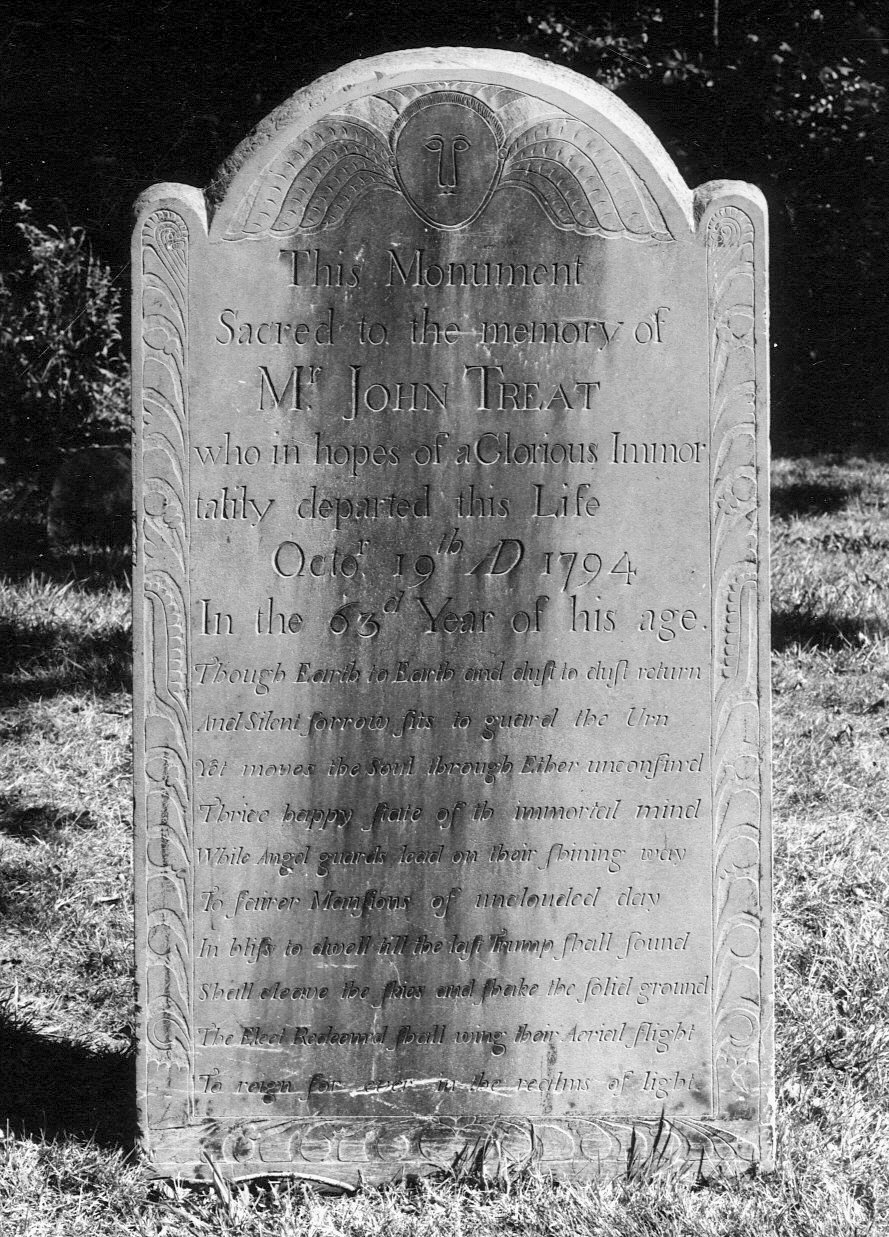 This Monument
Sacred to the memory of
Mr. JOHN TREAT
who in hopes of a Glorious Immor
tality departed this Life
Octor. 19th AD 1794
In the 63d Year of his age.
Though Earth to Earth and duſt to duſt return
And Silent ſorrow ſits to guard the Urn
Yet moves the Soul through Ether unconfin'd
Thrice happy ſtate of th immortal mind
While Angel guards lead on their ſhining way
To fairer Manſions of unclouded day
In bliſs to dwell till the laſt Trump ſhall ſound
Shall cleave the ſkies and ſhake the ſolid ground
The Elect Redeem'd ſhall wing their Aerial flight
To reign for ever in the realms of light